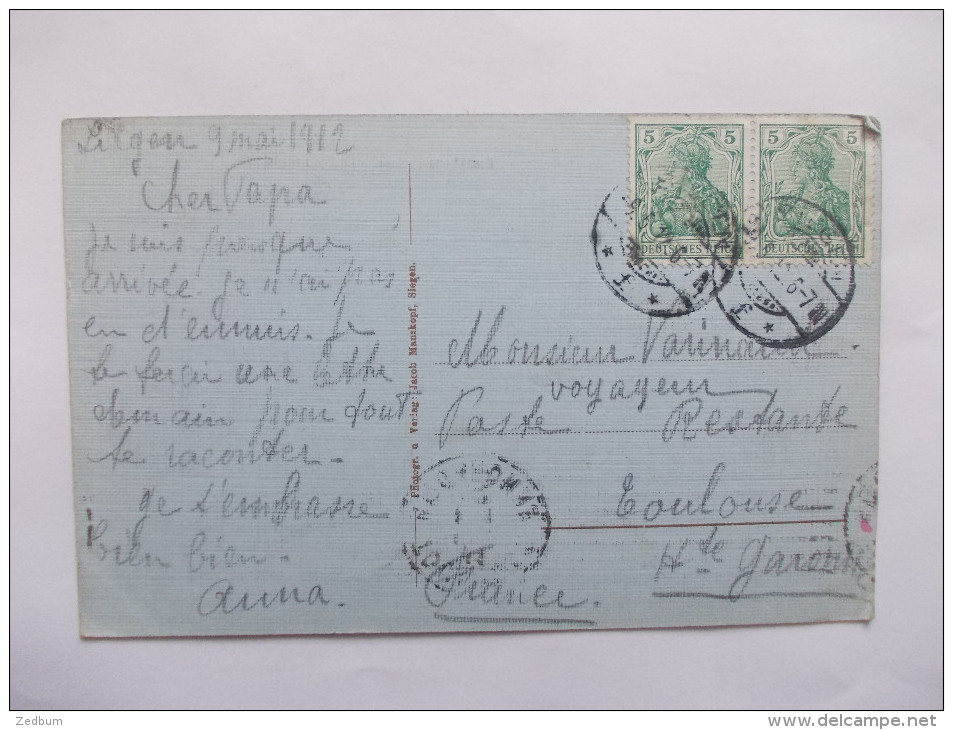 Siegen 9 mai 1912
Cher Papa
Je suis presque
arrivée. Je n'ai pas
eu d'ennuis. Je
te ferai une lettre
demain pour tout
te raconter.
Je t'embrasse
bien bien.
Anna.
Photogr. u Verlag: Jacob Manskopf, Siegen.
5 5 5 5
DEUTSCHES REICH DEUTSCHES REICH
Monsieur
voyageur
Poste Restante
Toulouse
Hte Garonne
France.
Zedbum
delcampe.net